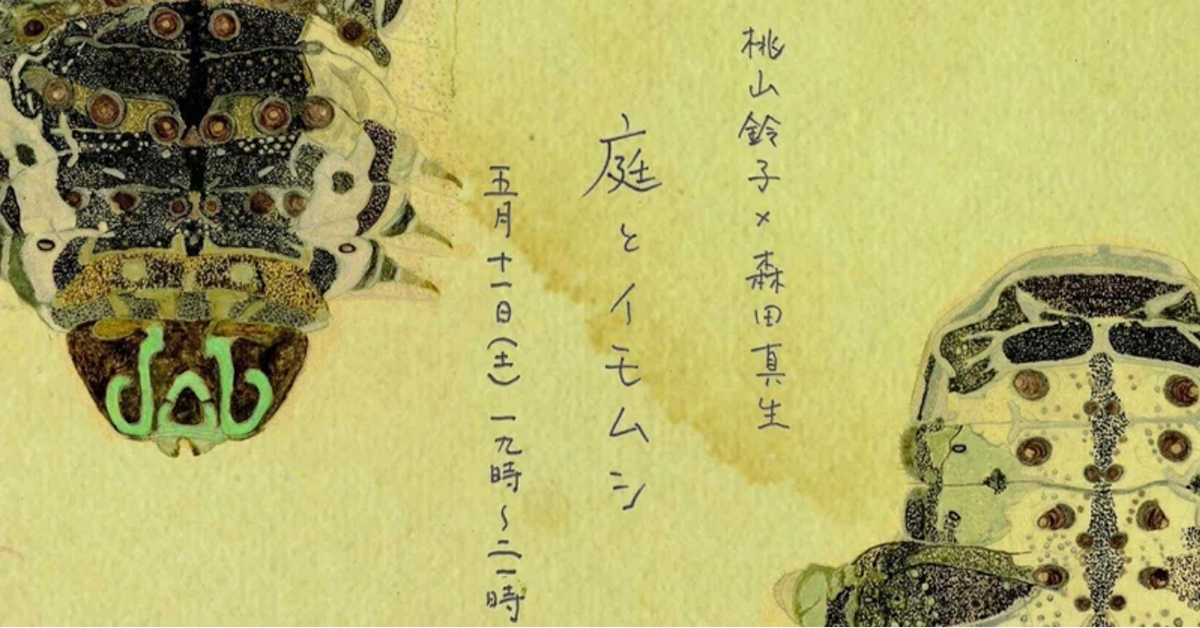 桃山鈴子×森田真生
庭とイモムシ
五月十一日(土)一九時~二一時